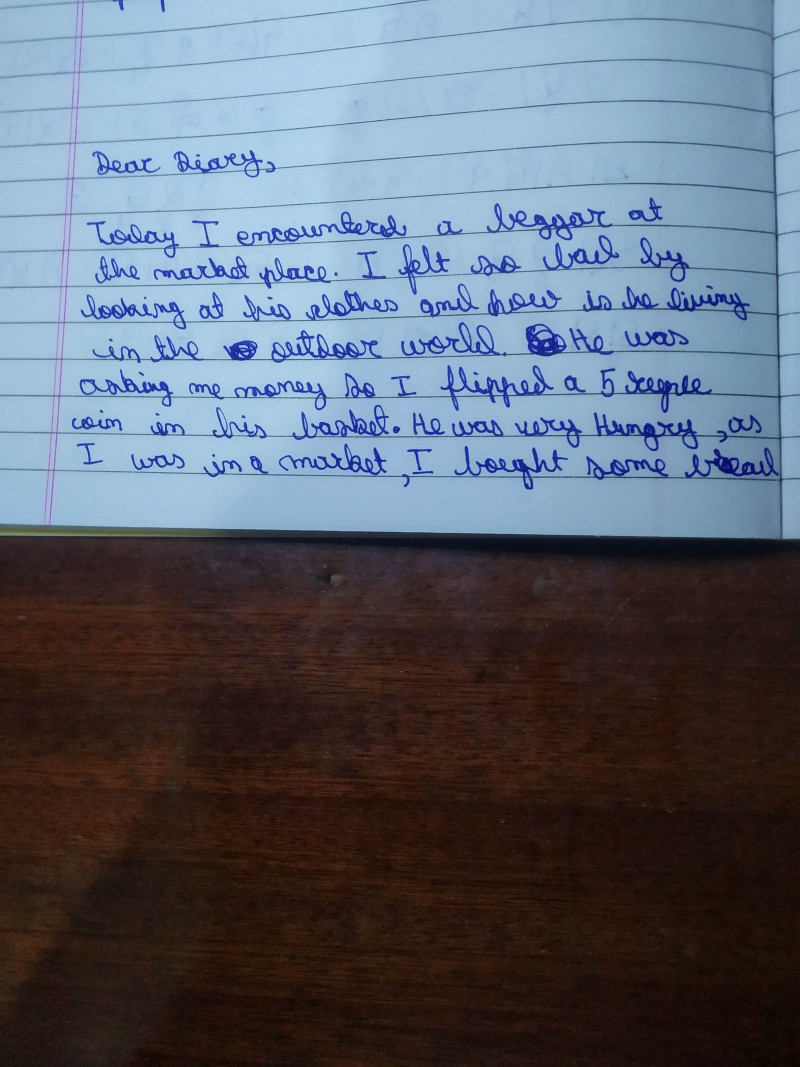 Dear Diary,
Today I encountered a beggar at
the market place. I felt so bad by
looking at his clothes and how is he living
in the outdoor world. He was
asking me money so I flipped a 5 rupee
coin in his basket. He was very Hungry, as
I was in a market, I bought some bread